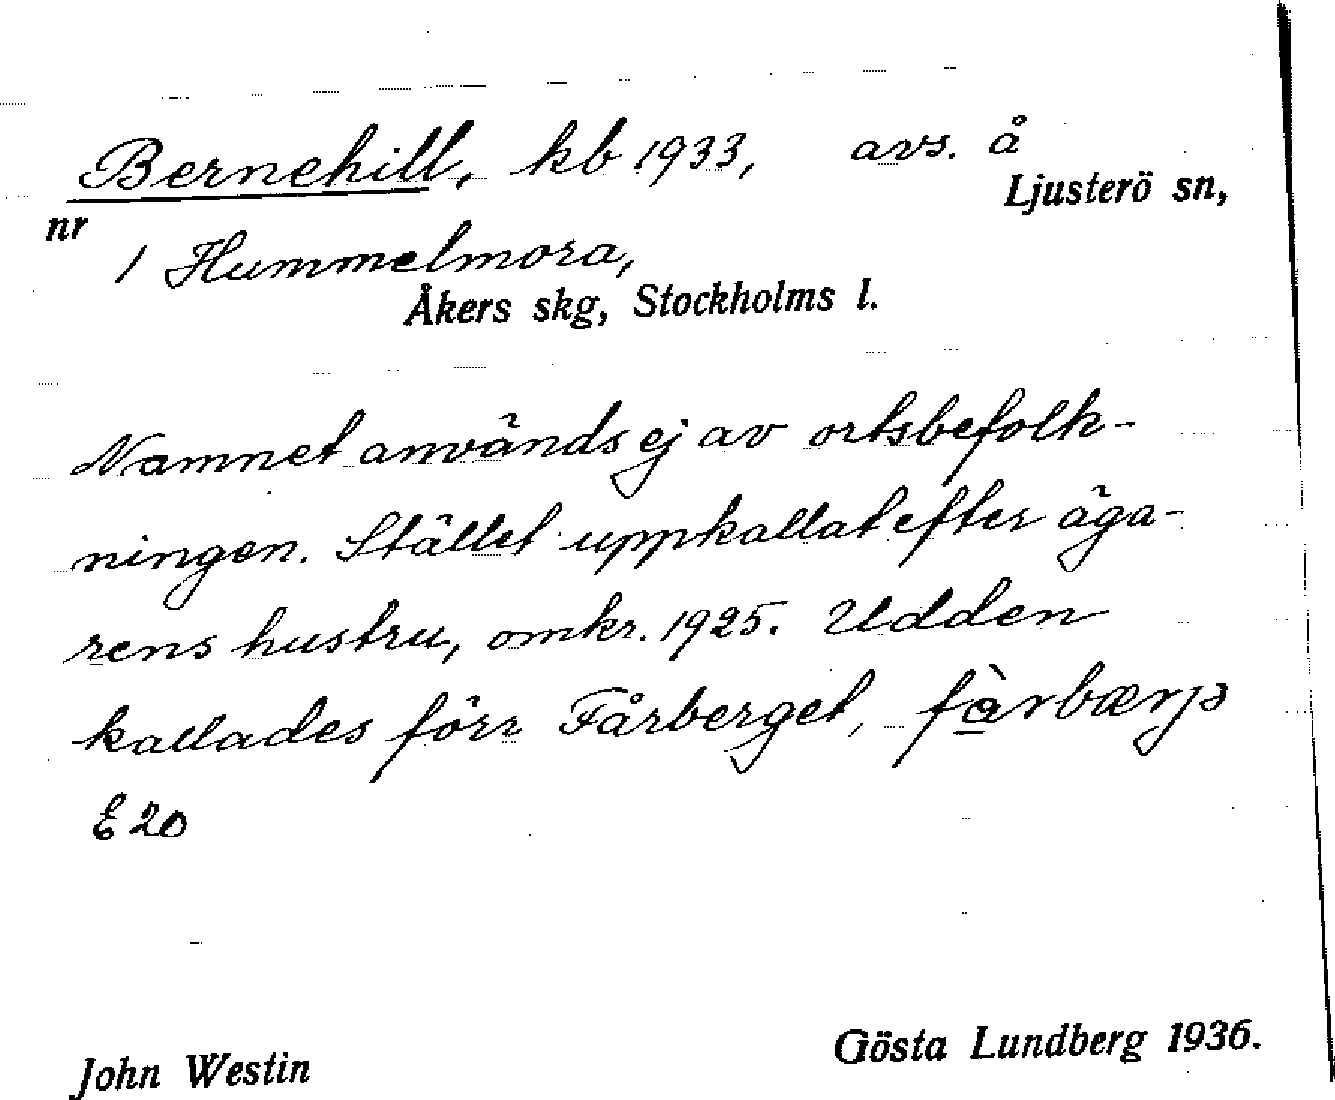 Bernehill, kb 1933, avs. å
Ljusterö sn,
nr
1 Hummelmora,
Åkers skg, Stockholms l.
Namnet används ej av ortsbefolk-
ningen. Stället uppkallat efter äga-
rens hustru, omkr. 1925. Udden
kallades förr Fårberget,
E 20
John Westin
Gösta Lundberg 1936.